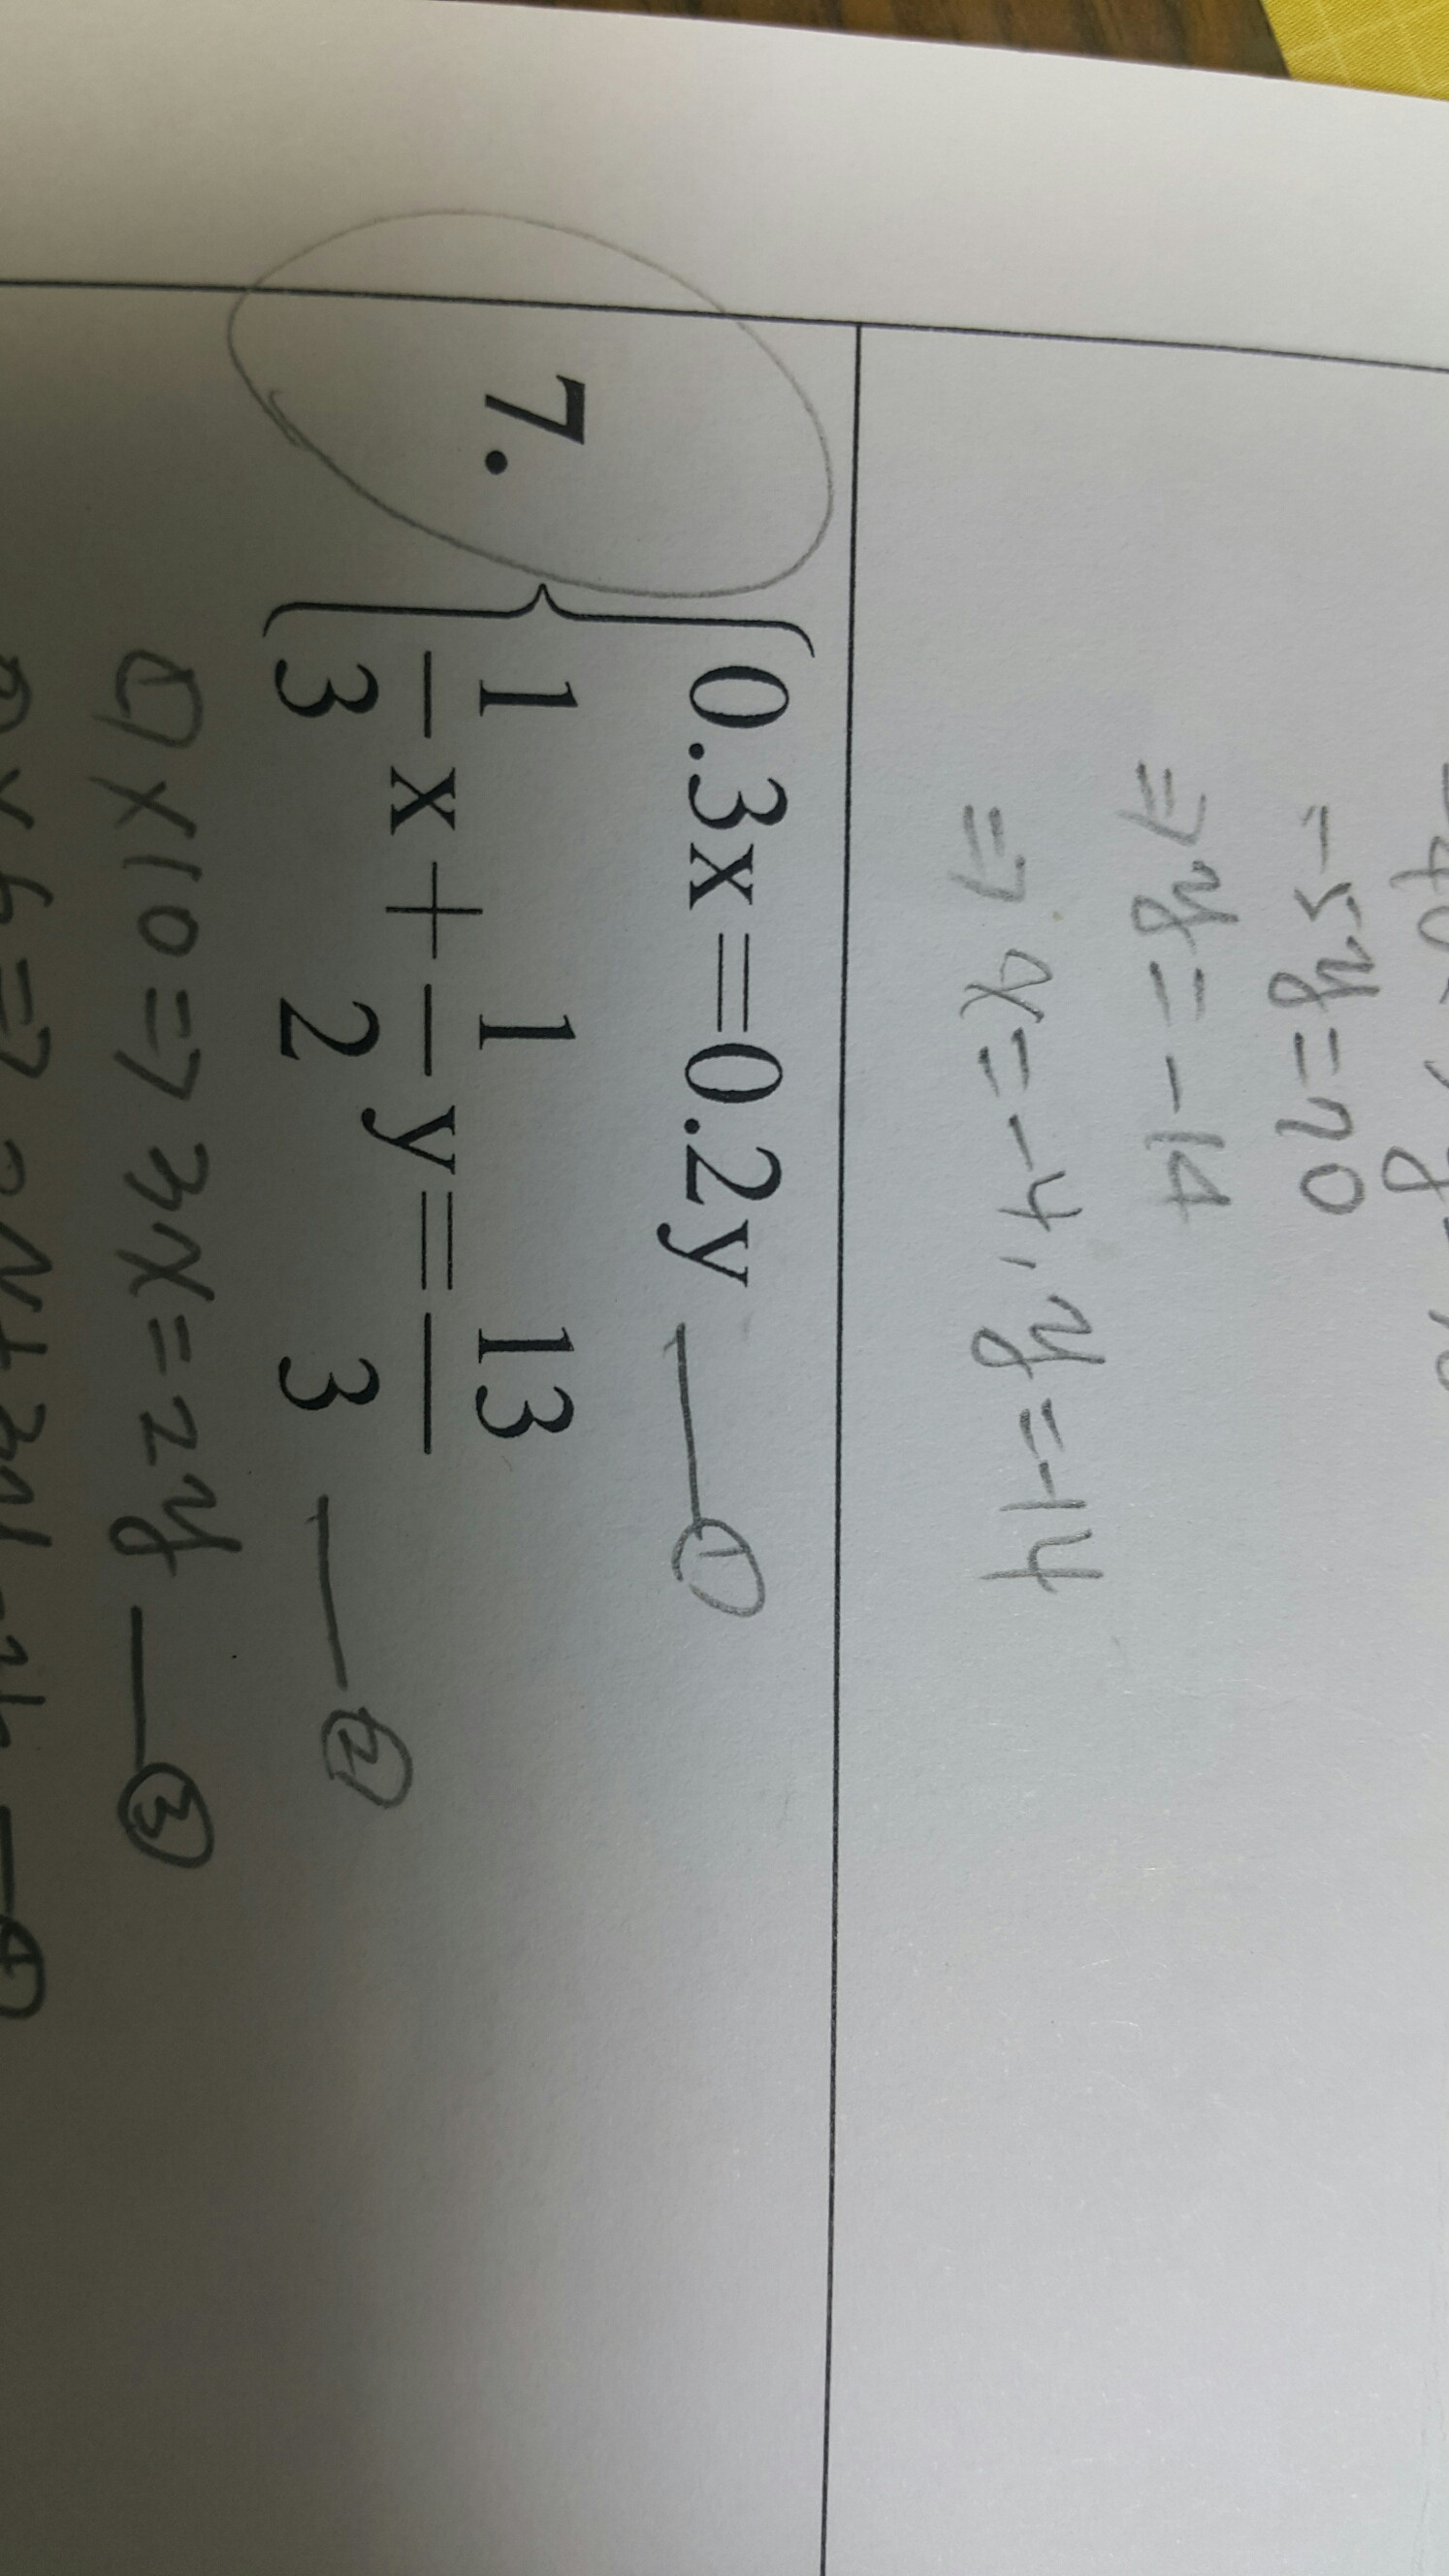 -5y=20
⇒y=-14
⇒x=-4, y=-14
7. {0.3x=0.2y —①
1/3x+1/2y=13/3 —②
①×10⇒3x=2y —③